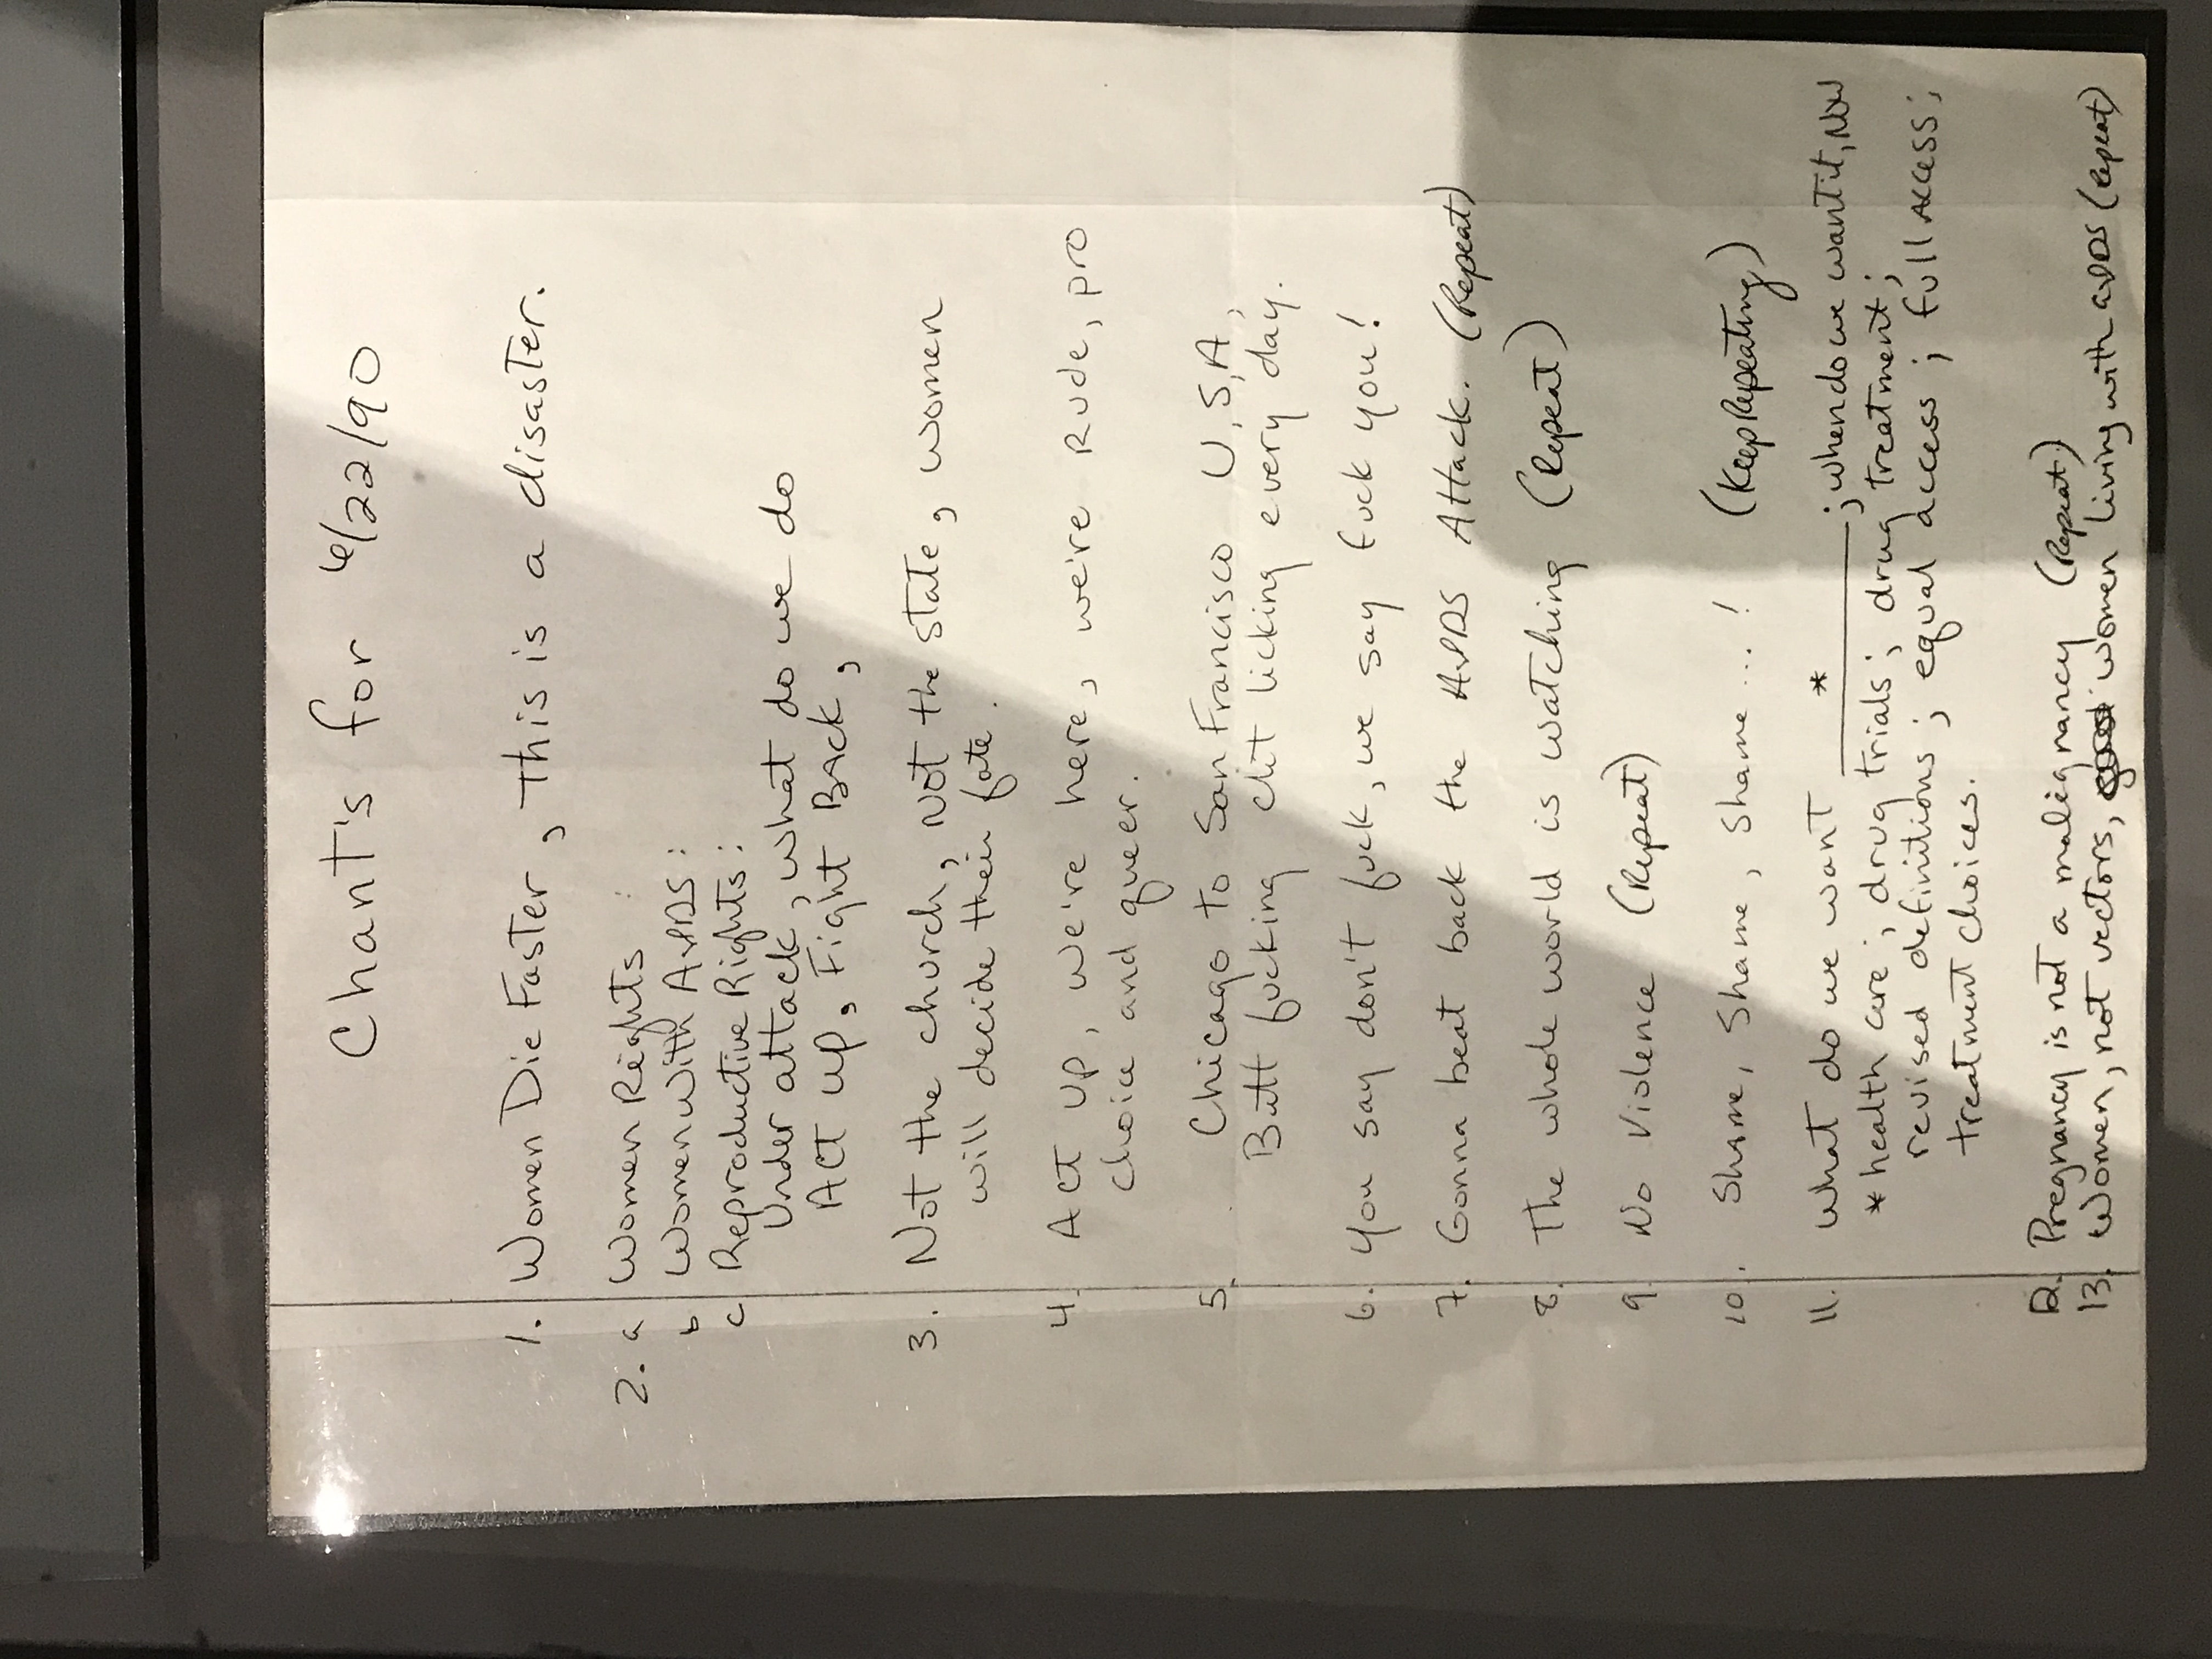 Chant's for 6/22/90
1. Women Die Faster, this is a disaster.
2. a Women Rights :
b Women with AIDS :
c Reproductive Rights :
Under attack, what do we do
ACT UP, Fight BACK,
3. Not the church, Not the state, women
will decide their fate.
4. ACT UP, we're here, we're Rude, pro
choice and queer.
5. Chicago to San Francisco U,S,A,
Butt fucking clit licking every day.
6. you say don't fuck, we say fuck you!
7. Gonna beat back the AIDS Attack. (Repeat)
8. The whole world is watching (Repeat)
9. No Violence (Repeat)
10. Shame, Shame, Shame, Shame...! (Keep Repeating)
11. What do we want * ; when do we want it, Now
* health care; drug trials; drug treatment;
revised definitions; equal access; full ACCESS;
treatment choices.
12. Pregnancy is not a malignancy (Repeat)
13. Women, not vectors, women living with AIDS (repeat)